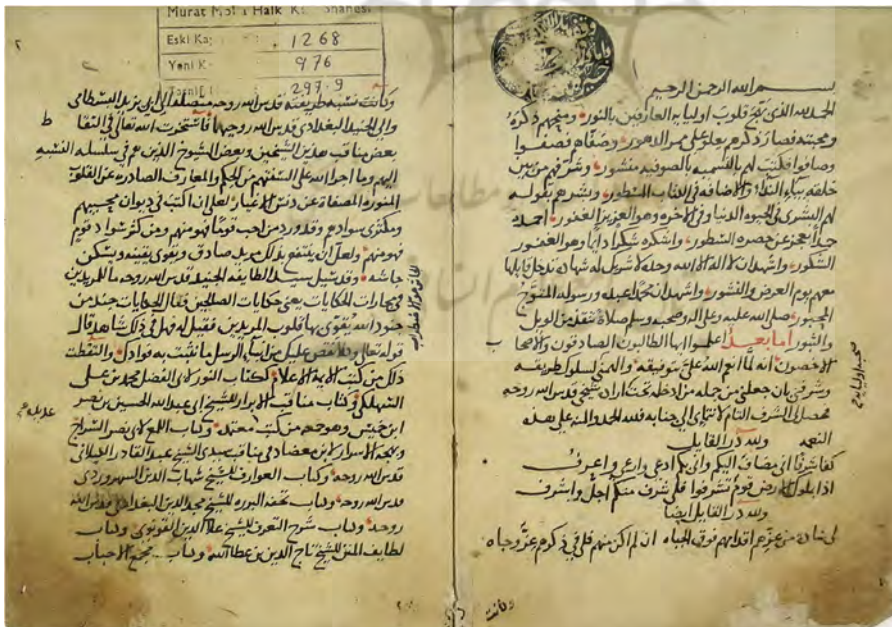 بسم الله الرحمن الرحيم
الحمد لله الذي قلوب اوليايه العارفين بالنور ومنحهم ذكره
ومحبته فصار ذكرهم يعلو على ممر الدهور وصفاهم فصفوا
وصافوا فكتب لهم بالتسميه بالصوفيه منشور وشرفهم من بين
خلقه بياء النداء والاضافه في الكتاب المسطور وبشرهم بقوله
لهم البشرى في الحيوه الدنيا وفي الاخره وهو العزيز الغفور احمده
حمدا يعجز عن حصره السطور واشكره شكرا دايما وهو الغفور
الشكور واشهد ان لا اله الا الله وحده لا شريك له شهادة تدخل قايلها
معهم يوم العرض والنشور واشهد ان محمدا عبده ورسوله المتوج
المحبور صلى الله عليه وعلى اله وصحبه وسلم صلاة تنقذ من الويل
والثبور اما بعد اعلموا ايها الطالبون الصادقون والاصحاب
الاخصون انه لما انعم الله علي بتوفيقه والهمني لسلوك طريقه
وشرفني بان جعلني من جمله من ادخله تحت اراد شيخي قدس الله روحه
محصل لي الشرف التام لانتماي الى جنابه فلله الحمد والمنه على هذه
النعمه ولله در القايل
كفا شرفا اني مضاف اليكم واني بكم ادعى وارعى واعرف
اذا بملوك الارض قوم تشرفوا فلي شرف منكم اجل واشرف
ولله در القايل ايضا
لي سادة من عزهم اقدامهم فوق الجباه ان لم اكن منهم فلي في ذكرهم عز وجاه
وكانت
Murat Molla Halk
Eski Ka 1268
Yeni K 976
297.9
وكانت نسبه طريقته قدس الله روحه متصله الى ابي يزيد البسطامي
والى الجنيد البغدادي قدس الله روحيهما فاستخرت الله تعالى في التقا
بعض مناقب هذين الشيخين وبعض الشيوخ الذين هم في سلسله النسبه
ط
اليهم وما اجراه الله على السنتهم من الحكم والمعارف الصادره عن القلوب
المنوره المصفاة عن دنس الاغيار لعل ان اكتب في ديوان محبيهم
ومكثري سوادهم وقد ورد من احب قوما فهو منهم ومن كثر سواد قوم
فهو منهم ولعل ان ينتفع بذلك مريد صادق ويقوى يقينه ويسكن
جاشه وقد سيل سيد الطايفه الجنيد قدس الله روحه ما للمريدين
في مجارات الحكايات يعني حكايات الصالحين فقال الحكايات جند من
جنود الله يقوى بها قلوب المريدين فقيل له فهل في ذلك شاهد قال
قوله تعالى وكلا نقص عليك من انباء الرسل ما نثبت به فوادك والتقطت
ذلك من كتب الايمة الاعلام لكتاب النور لابي الفضل محمد بن علي
السهلكي وكتاب مناقب الابرار للشيخ ابي عبد الله الحسين بن نصر
ابن خميس وهو مجمع من كتب معتمده وكتاب اللمع لابي نصر السراج
وبهجة الاسرار لابن معضاد في مناقب سيدي الشيخ عبد القادر الجيلاني
قدس الله روحه وكتاب العوارف للشيخ شهاب الدين السهروردي
قدس الله روحه وكتاب تحفه البرره للشيخ مجد الدين البغدادي قدس الله
روحه وكتاب شرح التعرف للشيخ علا الدين القونوي وكتاب
لطايف المنن للشيخ تاج الدين بن عطا الله وكتاب مجمع الاحباب